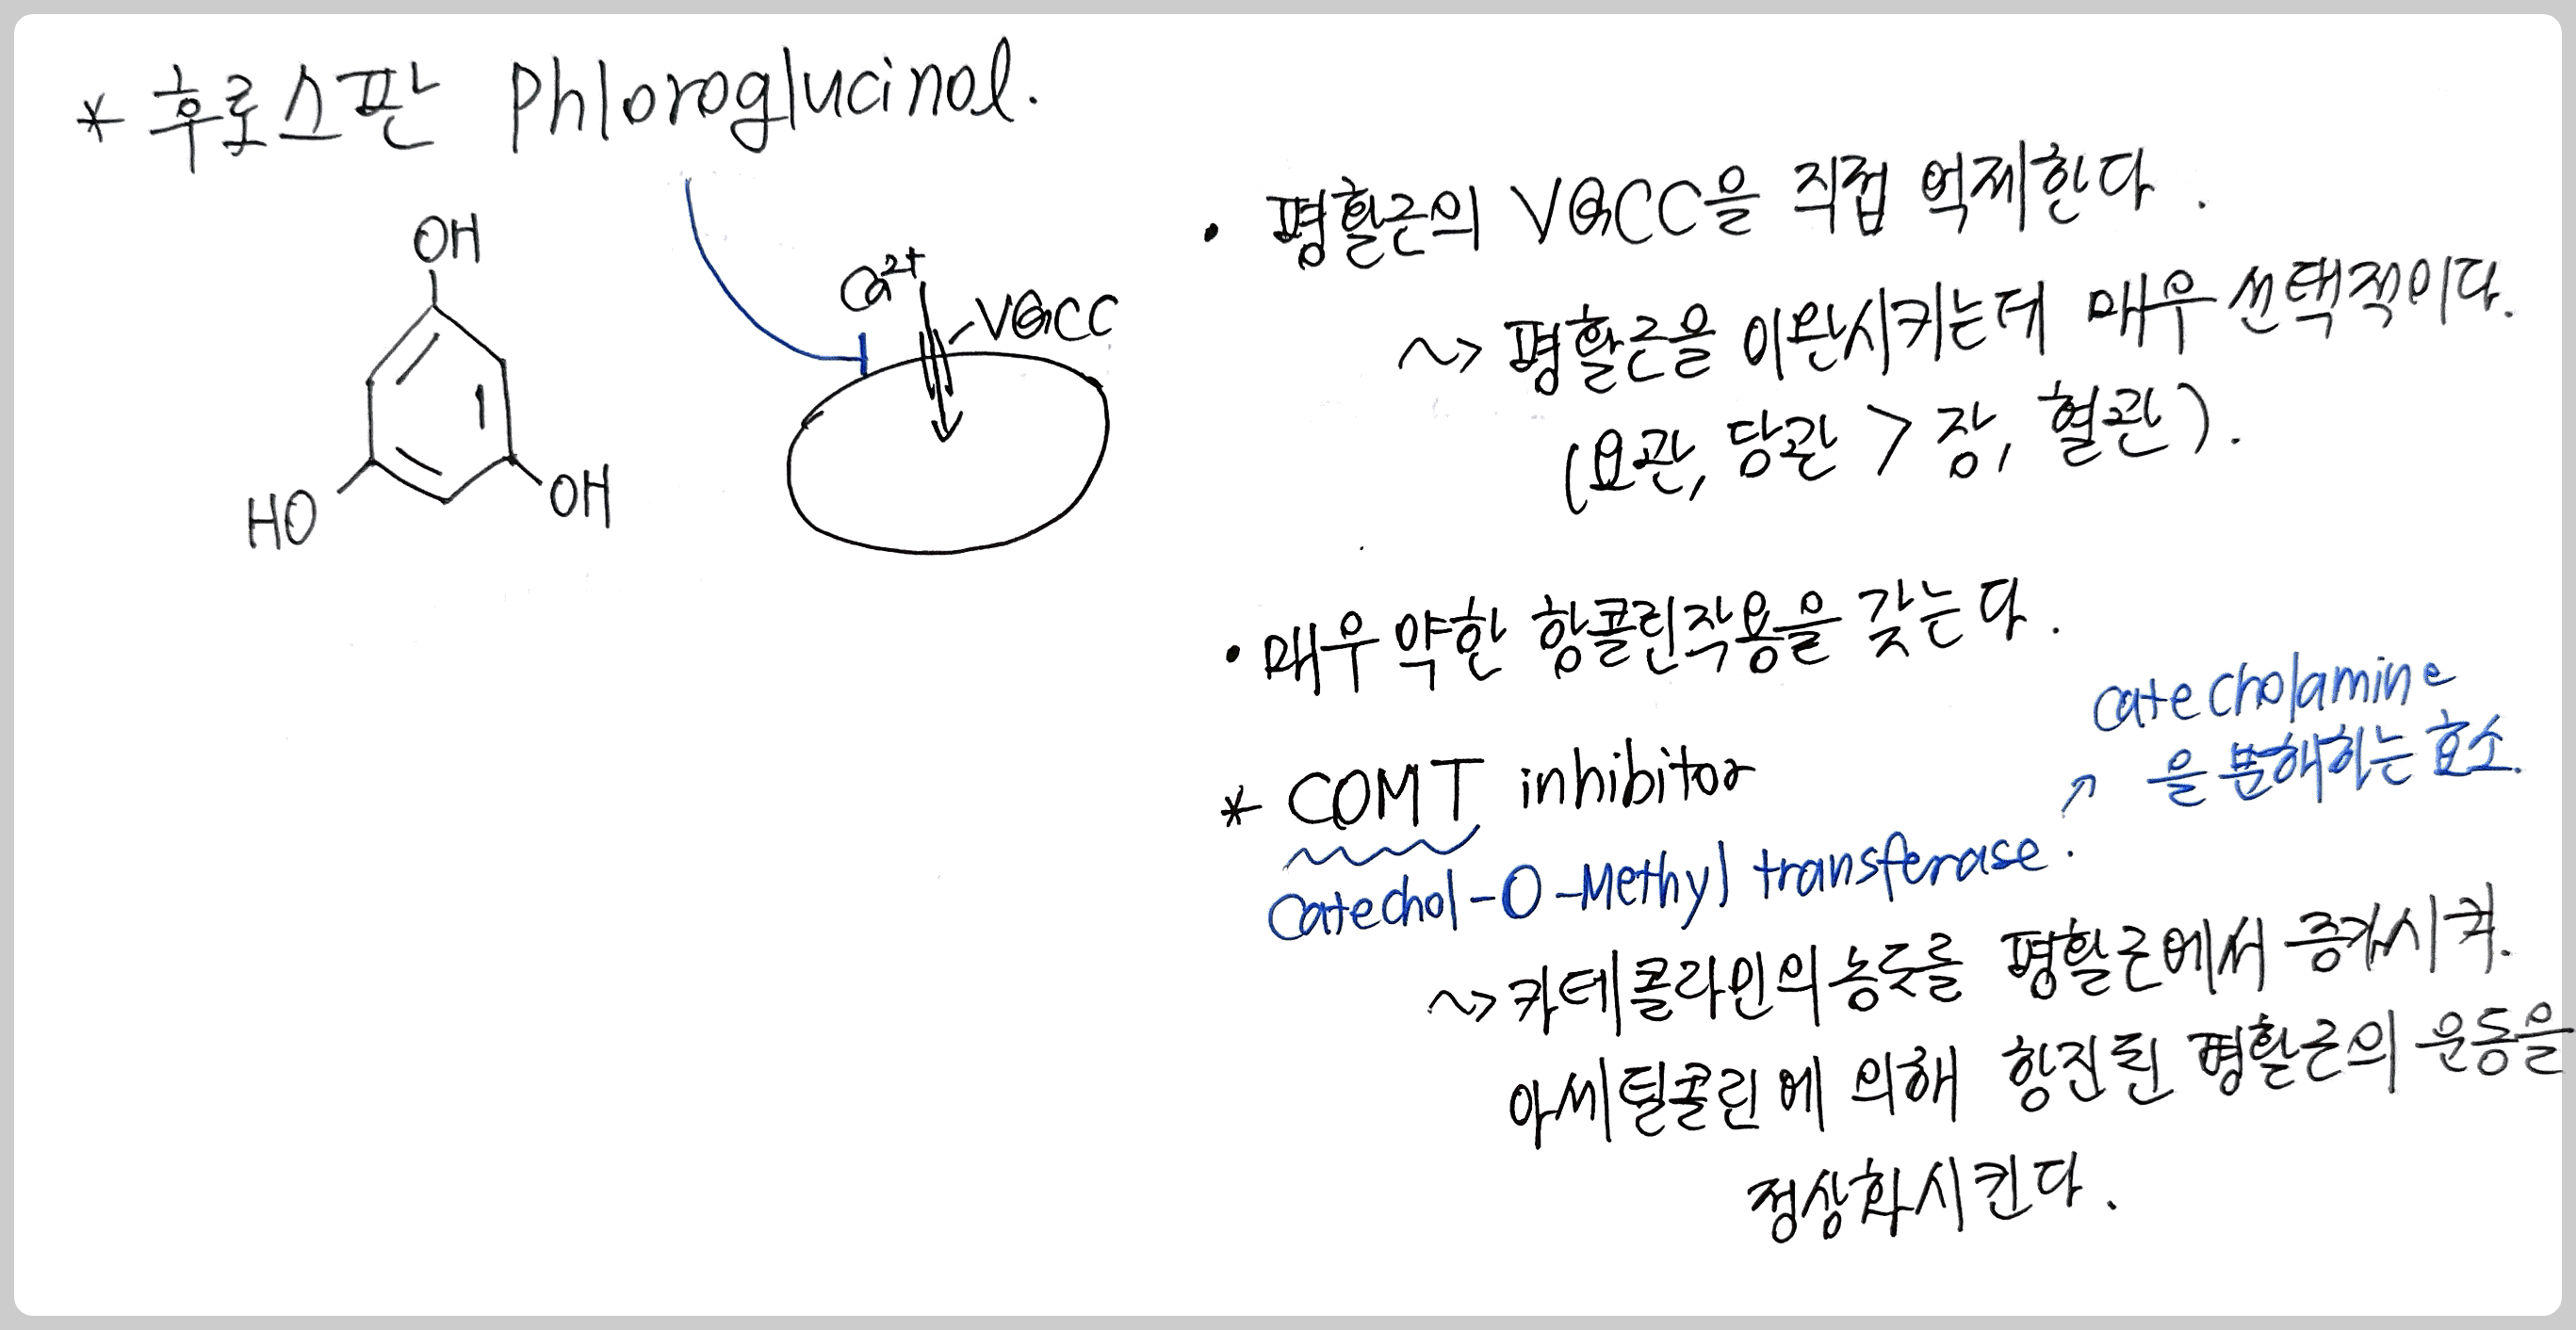 * 후로스판 Phloroglucinol.
OH
HO
OH
Ca2+
VGCC
• 평활근의 VGCC을 직접 억제한다.
~> 평활근을 이완시키는데 매우 선택적이다.
(요관, 담관 > 장, 혈관).
• 매우 약한 항콜린작용을 갖는다.
* COMT inhibitor
catecholamine
을 분해하는 효소.
Catechol-O-Methyl transferase.
~> 카테콜라민의 농돗를 평활근에서 증가시켜.
아세틸콜린에 의해 항진된 평활근의 운동을
정상화시킨다.